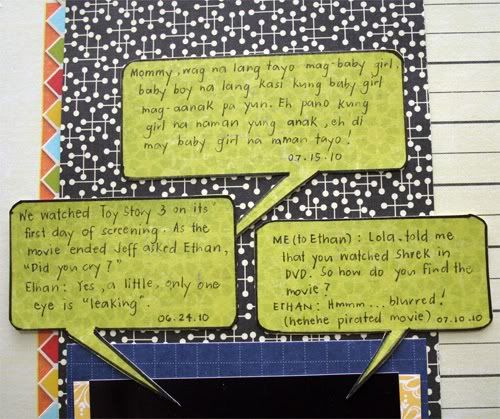 Mommy, wag na lang tayo mag-baby girl,
baby boy na lang kasi kung baby girl
mag-aanak pa yun. Eh pano kung
girl na naman yung anak, eh di
may baby girl na naman tayo.
07.15.10
We watched Toy Story 3 on its
first day of screening. As the
movie ended Jeff asked Ethan,
"Did you cry?"
Ethan: Yes, a little, only one
eye is "leaking".
06.24.10
ME (to Ethan): Lola, told me
that you watched Shrek in
DVD. So how do you find the
movie?
ETHAN: Hmmm... blurred!
(hehehe pirated movie) 07.10.10